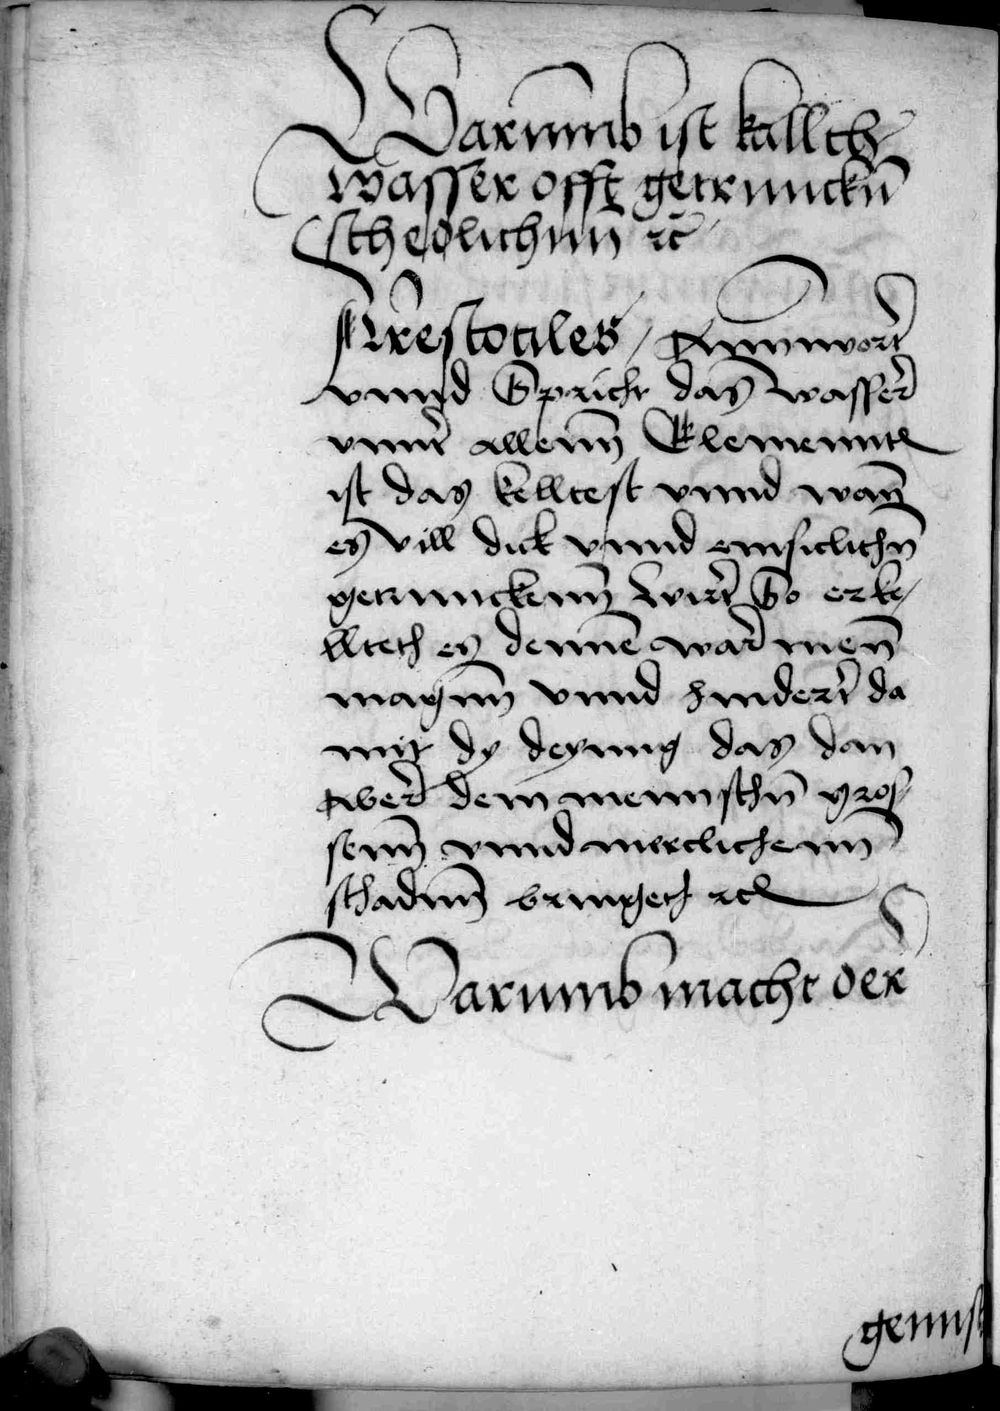 Warumb ist kallth
wasser offt getrunckn̄
schedlichnn ꝛc̄
Arestotiles / Anntwort
vnnd Spricht das wasser
vnnt̄ allenn Elementn
ist das kelltest vnnd wan̄
es vill dick vnnd emsiclichn̄
getrunckenn wirt So erke/
llteth es dennē war menn̄
magnn vnnd hindert da
mit dy deyung das dan
aber dem mennschn̄ gros/
senn vnnd mercklichenn
schadnn bringeth ꝛc
Warumb macht der
genns